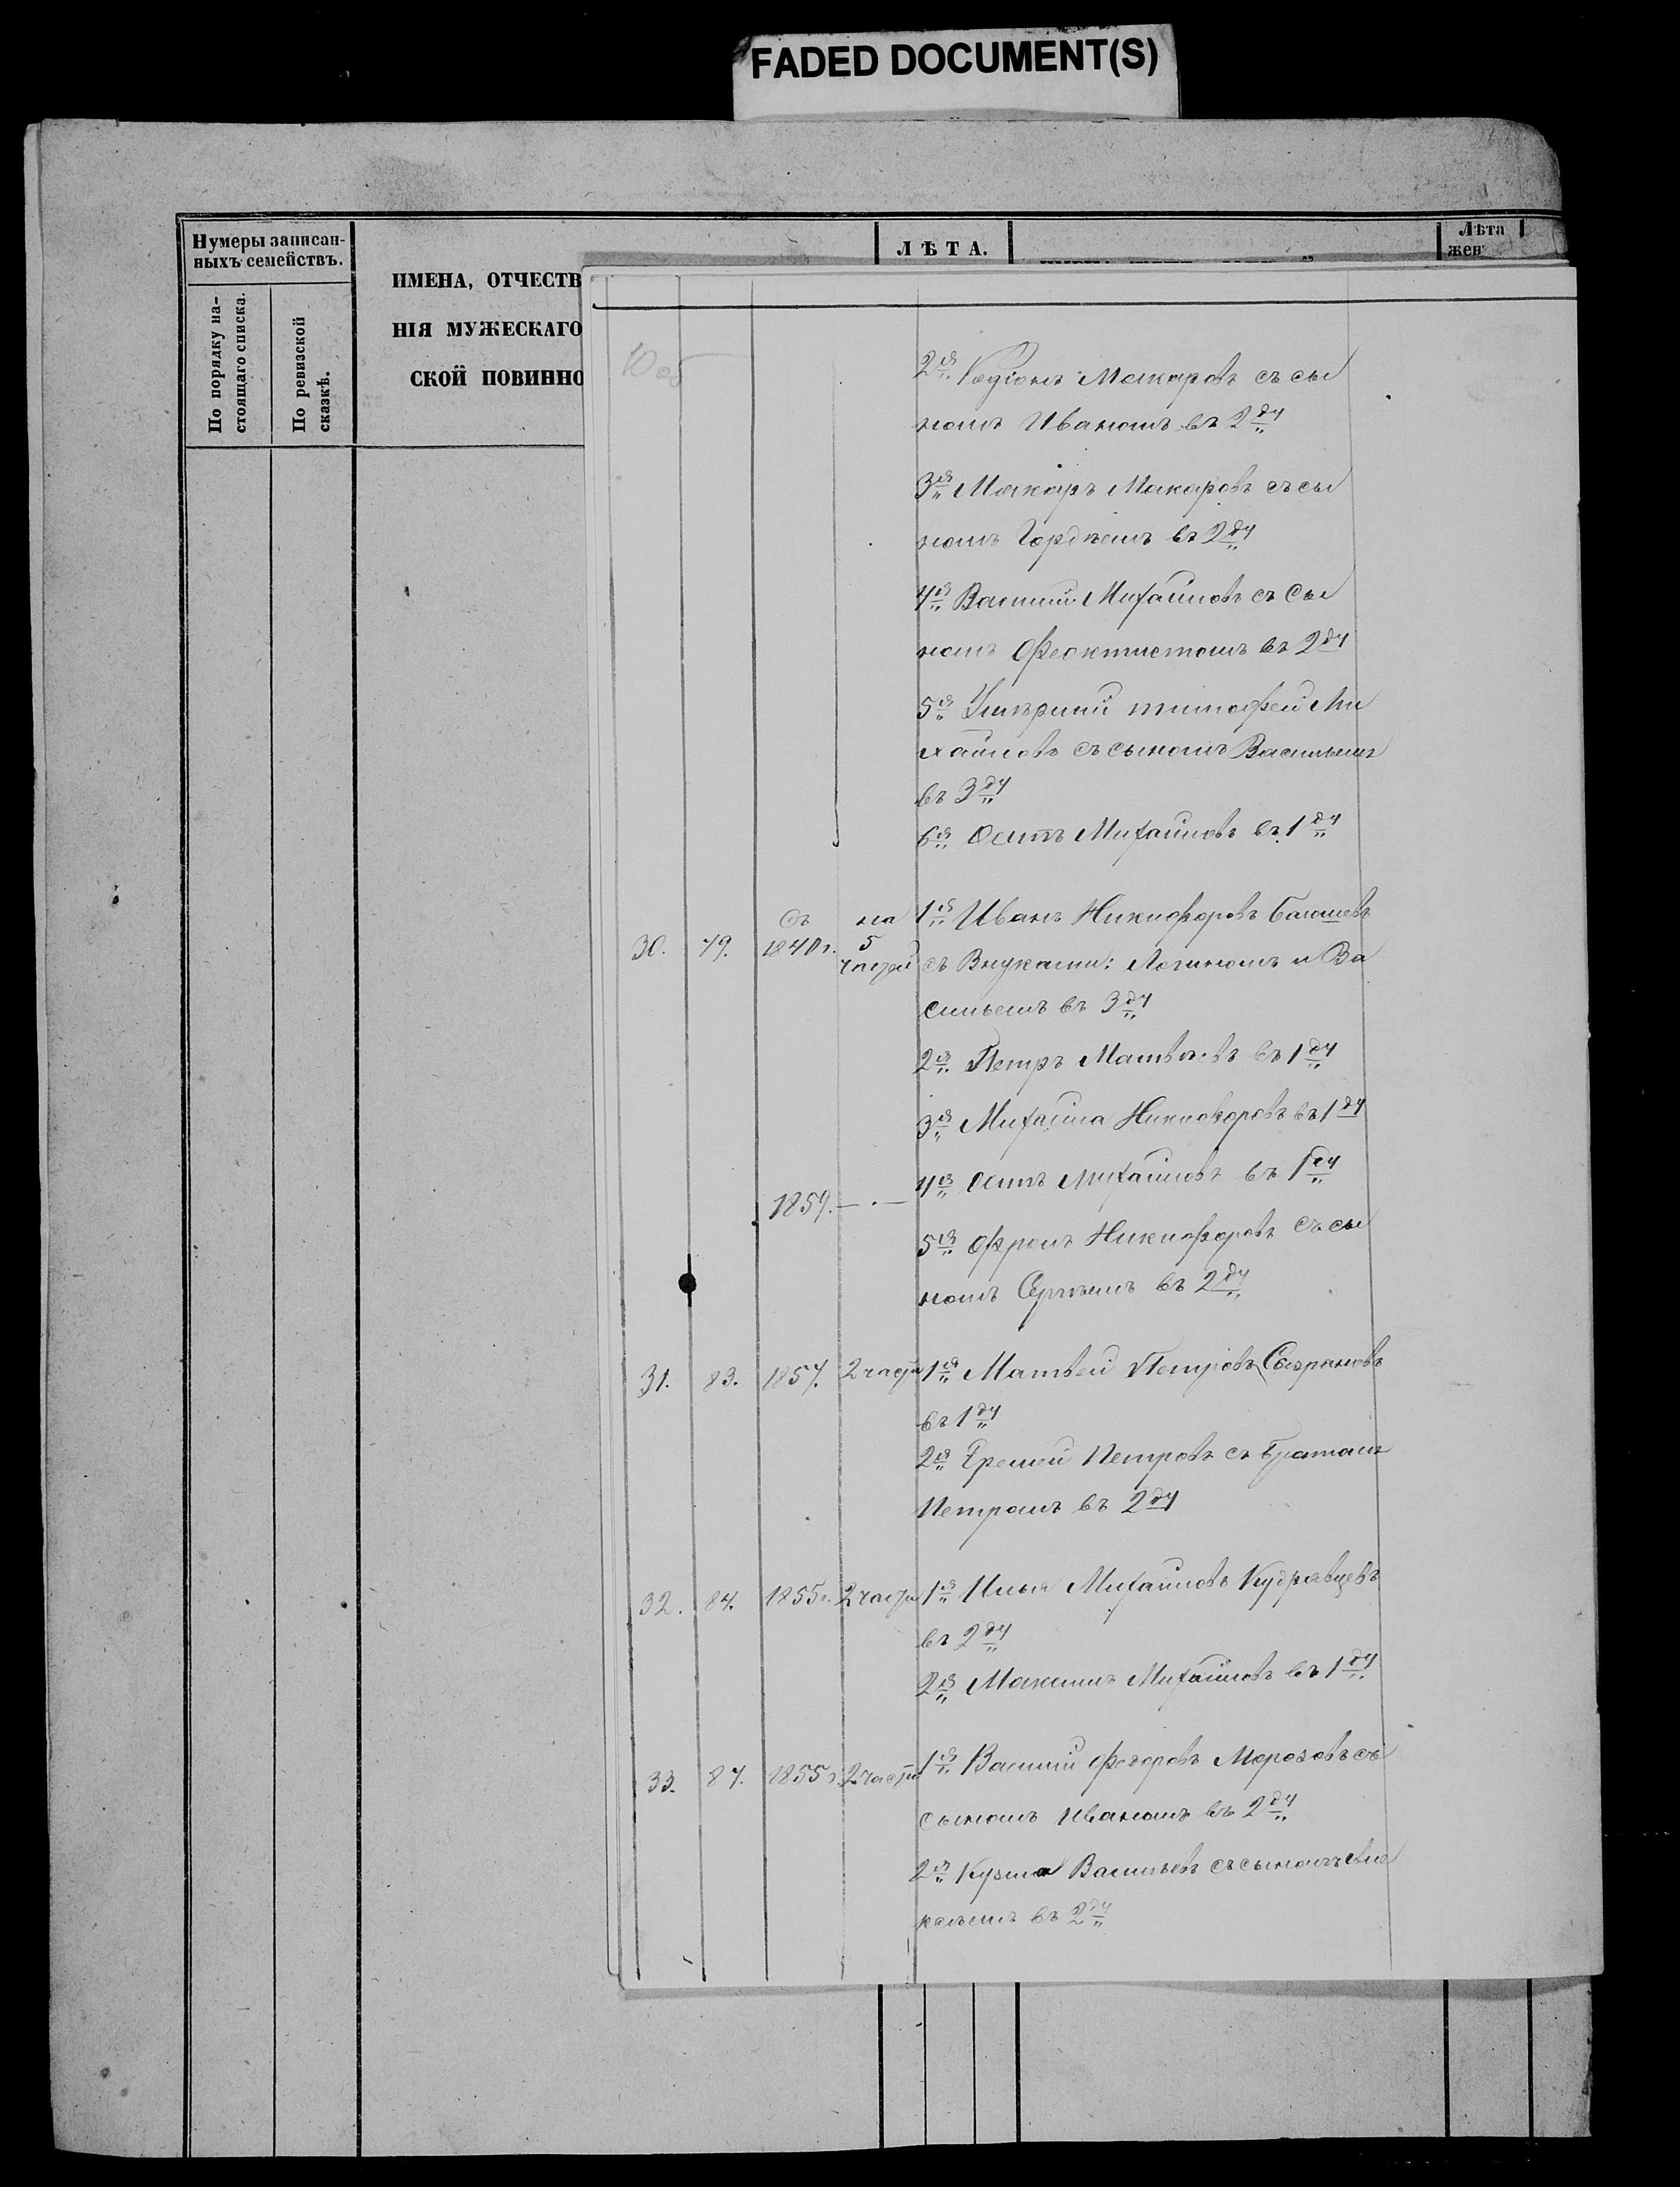 FADED DOCUMENT(S)
Нумеры записан-
ныхъ семействъ.
По порядку на-
стоящаго списка.
По ревизской
сказкѣ.
ИМЕНА, ОТЧЕСТВ
НІЯ МУЖЕСКАГО
СКОЙ ПОВИННО
ЛѢТА.
Лѣта
жен
10 об
2я Радіонъ Макаровъ съ сы
номъ Иваномъ въ 2 дч
3я Макаръ Макаровъ съ сы
номъ Гордѣемъ въ 2 дч
4я Василій Михайловъ съ сы
номъ Феоктистомъ въ 2 дч
5я Умѣршій тимофей Ми
хайловъ съ сыномъ Васильемъ
въ 3 дч
6я Осипъ Михайловъ въ 1 дч
30. 79. Съ 1840 г. на 5 частей
1я Иванъ Никифоровъ
съ Внуками: Логиномъ и Ва
сильемъ въ 3 дч
2я Петръ Матвѣевъ въ 1 дч
3я Михайла Никифоровъ въ 1 дч
4я Осипъ Михайловъ въ 1 дч
1859. — · —
5я Фролъ Никифоровъ съ сы
номъ Сергѣемъ въ 2 дч
31. 83. 1857. 2 части 1я Матвей Петровъ Сызрановъ
въ 1 дч
2я Еремей Петровъ съ братомъ
Петромъ въ 2 дч
32. 84. 1855 г. 2 части 1я Илья Михайловъ Кудрявцевъ
въ 2 дч
2я Максимъ Михайловъ въ 1 дч
33. 87. 1855 г. 2 части 1я Василій Федоровъ Морозовъ съ
сыномъ Иваномъ въ 2 дч
2я Кузма Васильевъ съ сыномъ
въ 2 дч